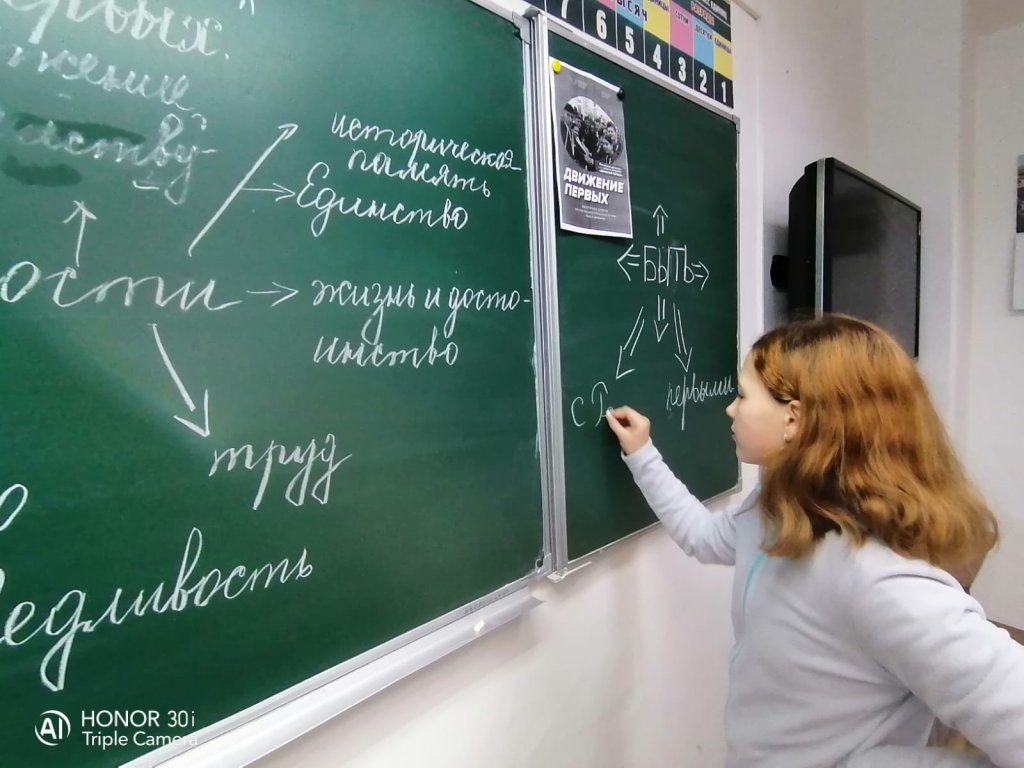 первых.
историческая
память
Единство
ости
жизнь и досто-
инство
труд
едливость
7 6 5 4 3 2 1
ТЫСЯЧ
ЕДИНИЦЫ
СОТНИ
ДЕСЯТКИ
ЕДИНИЦЫ
ДВИЖЕНИЕ
ПЕРВЫХ
БЫТЬ
с
первыми
AI
HONOR 30i
Triple Camera